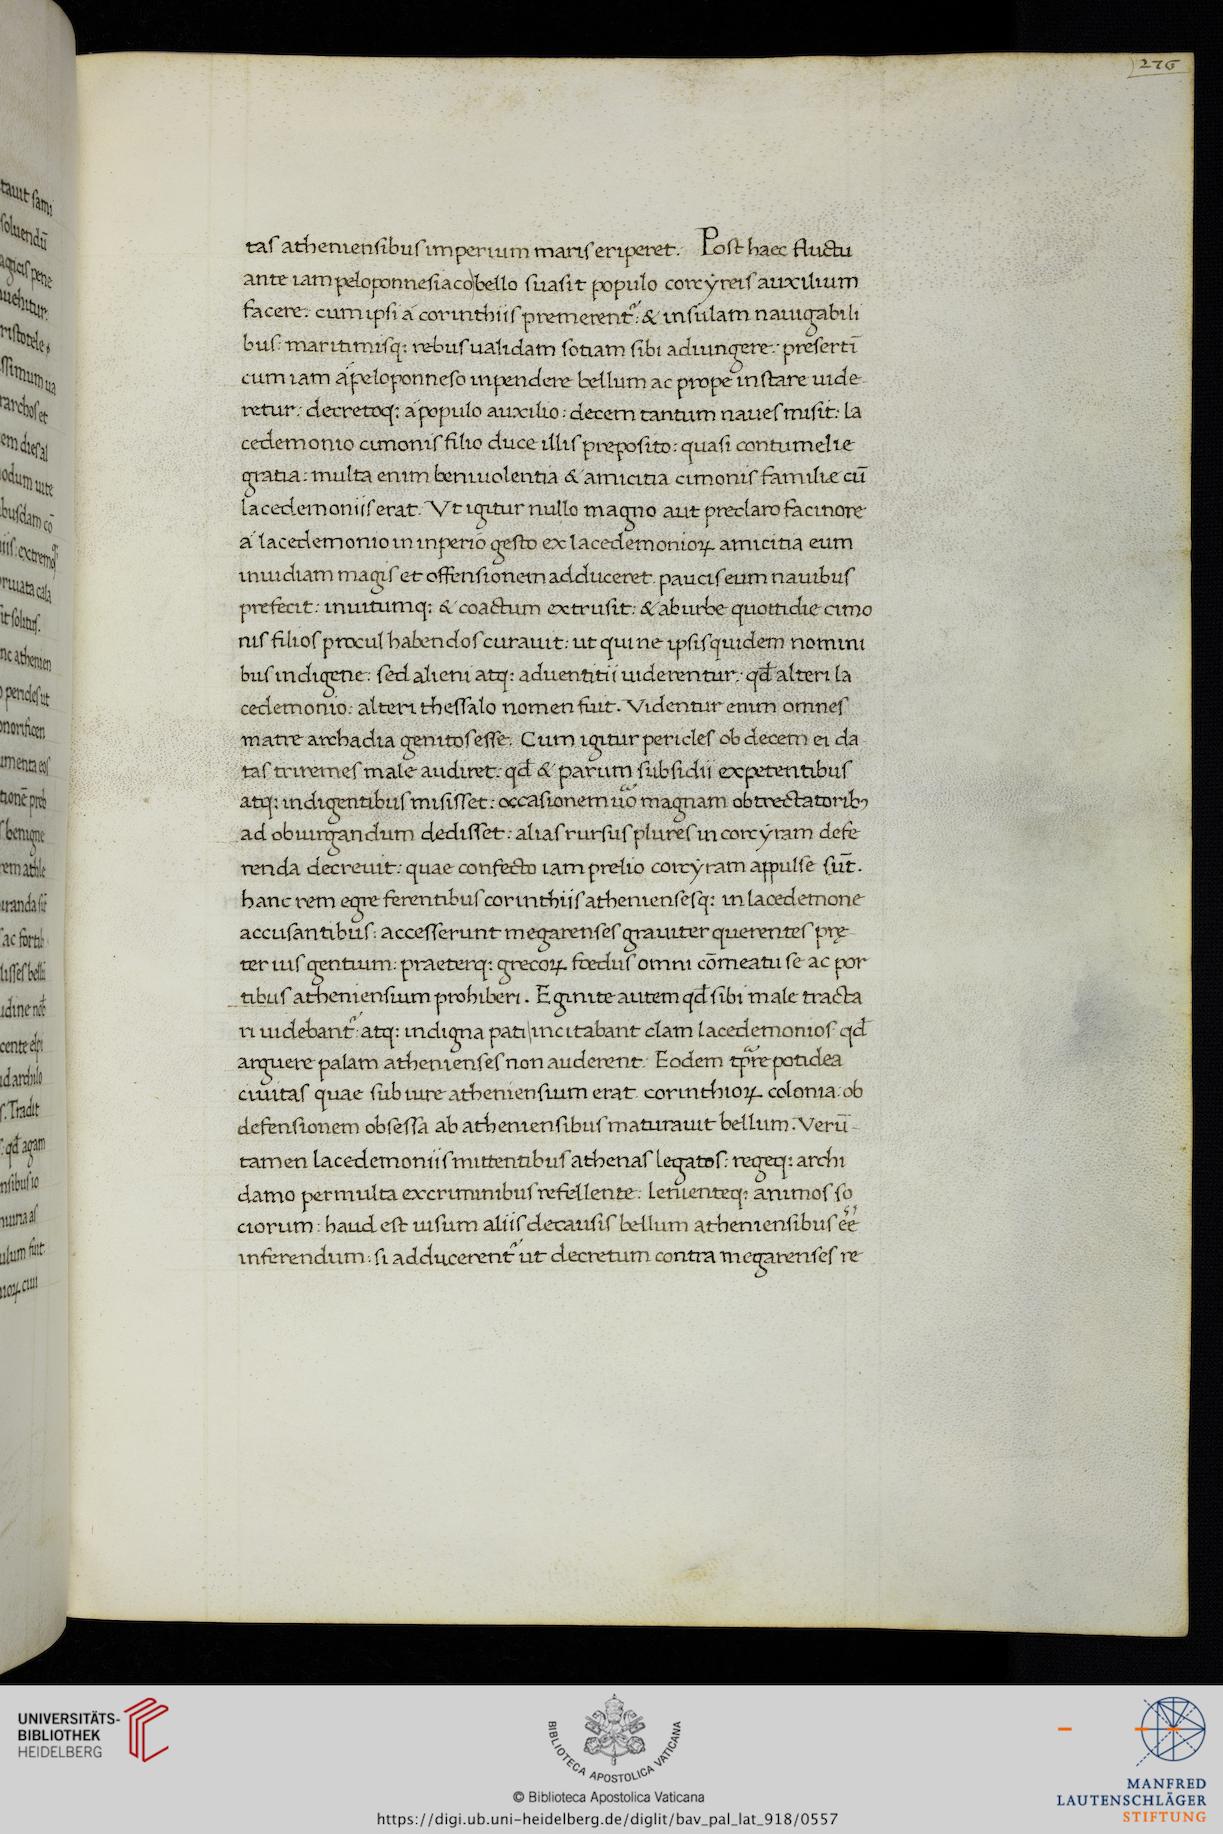 276
tas atheniensibus imperium maris eriperet. Post haec fluctu
ante iam peloponnesiaco bello suasit populo corcÿreis auxilium
facere: cum ipsi á corinthiis premerent᷑: & insulam nauigabili
bus: maritimisq: rebus ualidam sotiam sibi adiungere: presertī
cum iam á peloponneso inpendere bellum ac prope instare uide
retur: decretoq: á populo auxilio: decem tantum naues misit: la
cedemonio cimonis filio duce illis preposito: quasi contumelie
gratia: multa enim beniuolentia & amicitia cimonis familiæ cū
lacedemoniis erat. Vt igitur nullo magno aut preclaro facinore
á lacedemonio in inperio gesto ex lacedemonioꝝ amicitia eum
inuidiam magis et offensionem adduceret. paucis eum nauibus
prefecit: inuitumq: & coactum extrusit: & ab urbe quottidie cimo
nis filios procul habendos curauit: ut qui ne ipsis quidem nomini
bus indigene: sed alieni atq: aduentitii uiderentur: qđ alteri la
cedemonio: alteri thessalo nomen fuit. Videntur enim omnes
matre archadia genitos esse. Cum igitur pericles ob decem ei da
tas triremes male audiret: qđ & parum subsidii expetentibus
atq: indigentibus misisset: occasionem uo magnam obtrectatorib;
ad obiurgandum dedisset: alias rursus plures in corcÿram defe
renda decreuit: quae confecto iam prelio corcÿram appulse sūt.
hanc rem egre ferentibus corinthiis atheniensesq: in lacedemone
accusantibus: accesserunt megarenses grauiter querentes pre̜
ter ius gentium: praeterq: grecoꝝ fœdus omni cōmeatu se ac por
tibus atheniensium prohiberi. Eginite autem qđ sibi male tracta
ri uidebant᷑: atq: indigna pati incitabant clam lacedemonios qđ
arguere palam athenienses non auderent. Eodem tp̄re potidea
ciuitas quae sub iure atheniensium erat corinthioꝝ colonia: ob
defensionem obsessa ab atheniensibus maturauit bellum. Verū
tamen lacedemoniis mittentibus athenas legatos: regeq: archi
damo permulta ex criminibus refellente: lenienteq: animos so
ciorum: haud est uisum aliis de causis bellum atheniensibus ēē
inferendum: si adducerent᷑ ut decretum contra megarenses re
UNIVERSITÄTS-
BIBLIOTHEK
HEIDELBERG
BIBLIOTECA APOSTOLICA VATICANA
© Biblioteca Apostolica Vaticana
https://digi.ub.uni-heidelberg.de/diglit/bav_pal_lat_918/0557
MANFRED
LAUTENSCHLÄGER
STIFTUNG